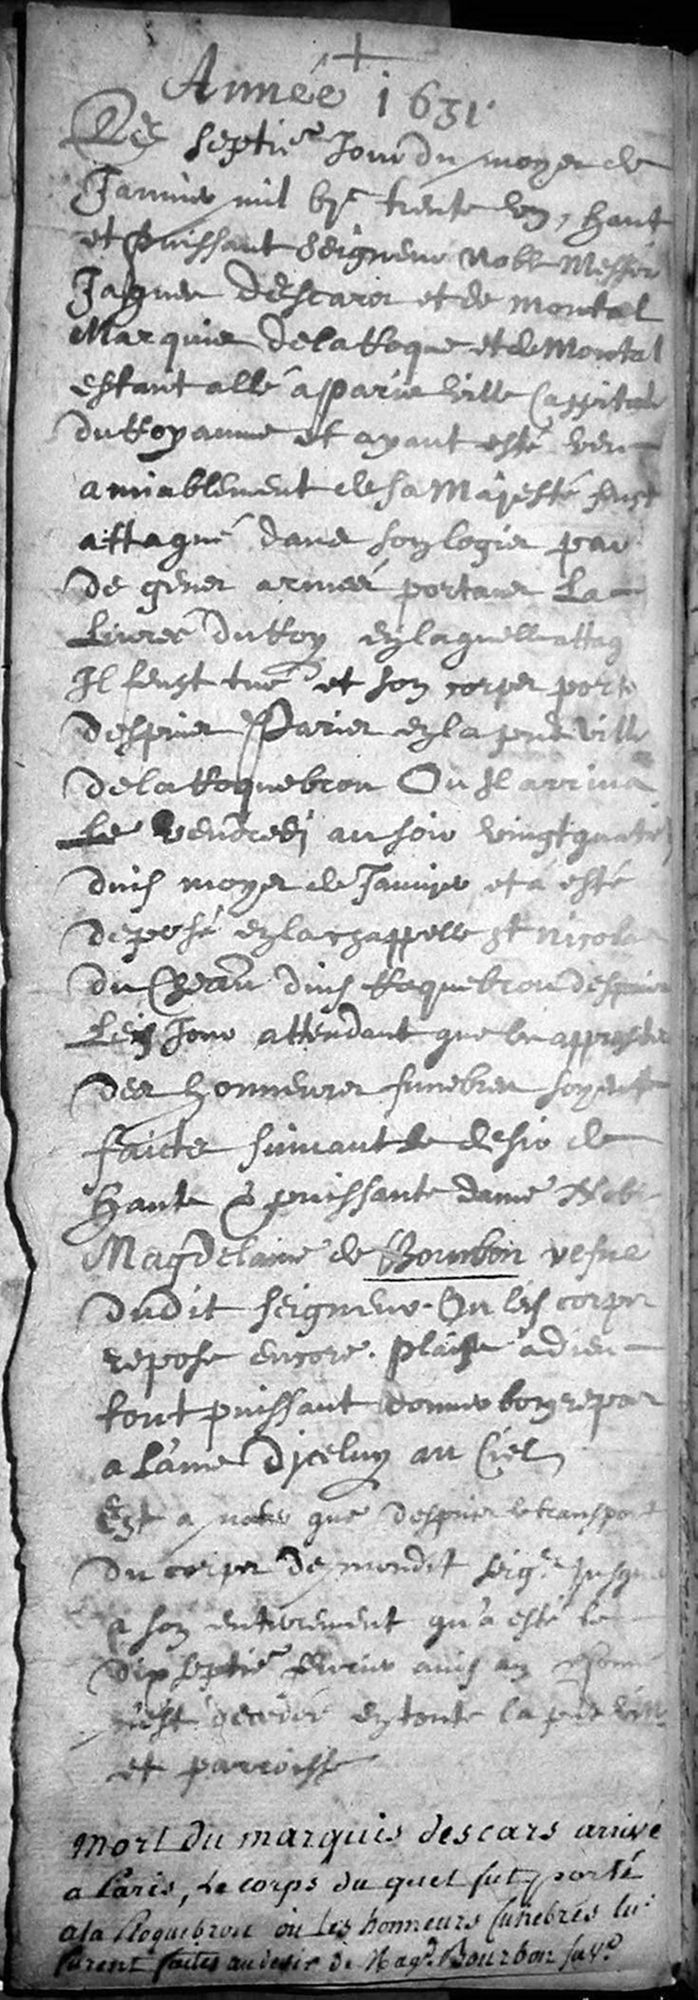 Année 1631
Le septie Jour du moys de
Janvier mil vjc trente ung, hault
et puissant Seigneur Noble Messire
Jaques Descars et de Montal
Marquis de la Roque et de Montal
estant allé a Paris ville Cappitale
du Royaume et ayant esté veu
amiablement de sa Majesté feust
attaqué dans son logis par
de gens armés portans La
Livrée du Roy en laquelle attaq
Il feust tué et son corps porté
despuis Paris en la pnte ville
de la Roquebrou Ou Il arriva
Le vendredi au soir vingt quatre
dud moys de Janvier et a esté
deposé en la chappelle St Nicolas
du Chateau dud Roquebrou despuis
Led Jour attendant que les apprestz
des honneurs funebres soyent
faicts suivant le desir de
Haute & puissante dame Noble
Magdelaine de Bourbon vefve
dudit seigneur. Ou led corps
repose encore. plaise a dieu
tout puissant donner bon repos
a l'ame d'jceluy au Ciel
Est a noter que despuis le transport
du corps de mondit seigr. Jusques
a son enterrement qu'a esté le
dix septie febvrier aud an
n'est decedé en toute la pnte ville
et parroisse
Mort du marquis descars arrivé
a Paris, Le corps du quel fut porté
a la Roquebrou ou Les honneurs funebres lui
furent faites au desir de Magd. Bourbon sa ve.